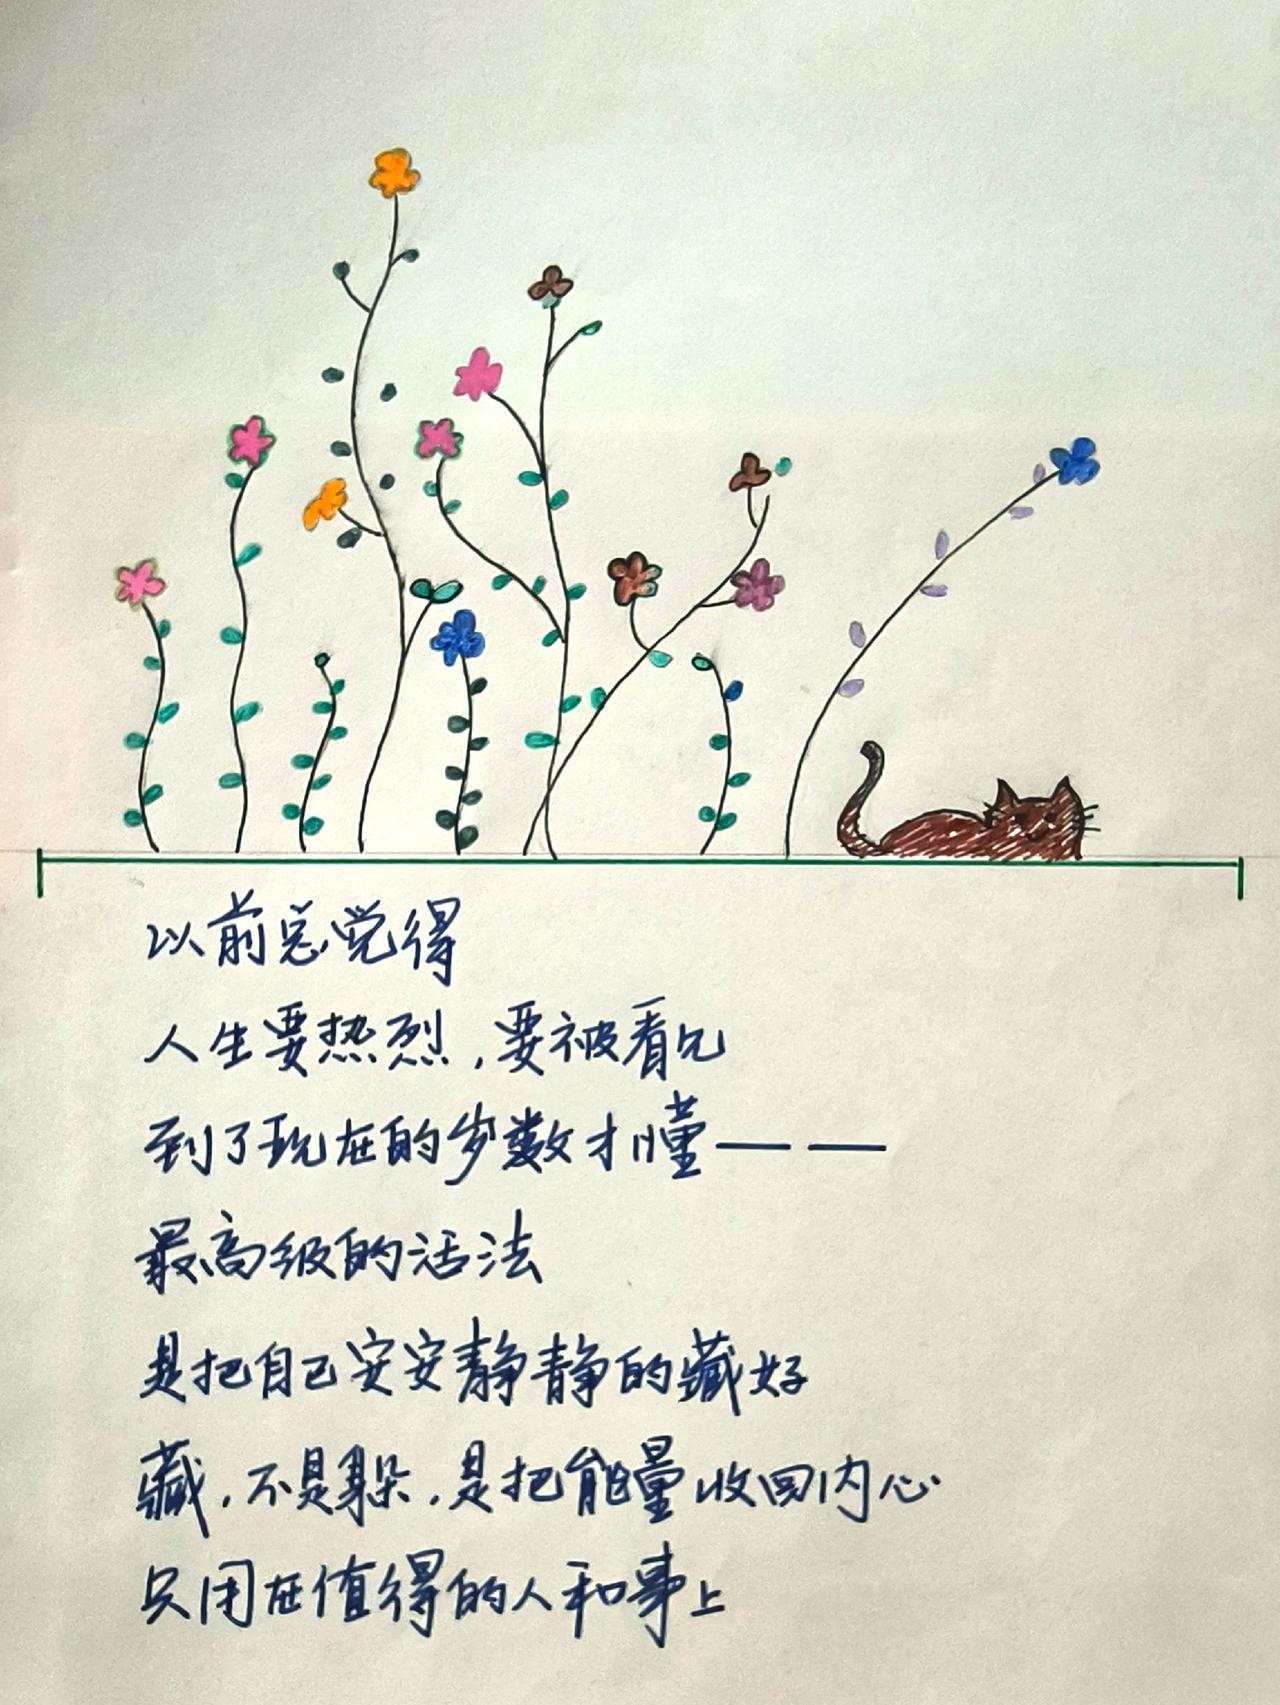 以前总觉得
人生要热烈，要被看见
到了现在的岁数才懂——
最高级的活法
是把自己安安静静的藏好
藏，不是躲，是把能量收回内心
只用在值得的人和事上